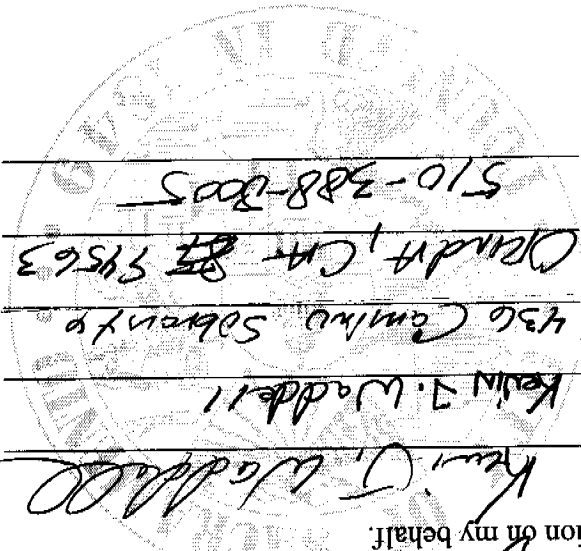 ion on my behalf.
Kevin J. Waddell
Kevin J. Waddell
436 Camino Sobrante
Orinda, CA 94563
510-388-8005